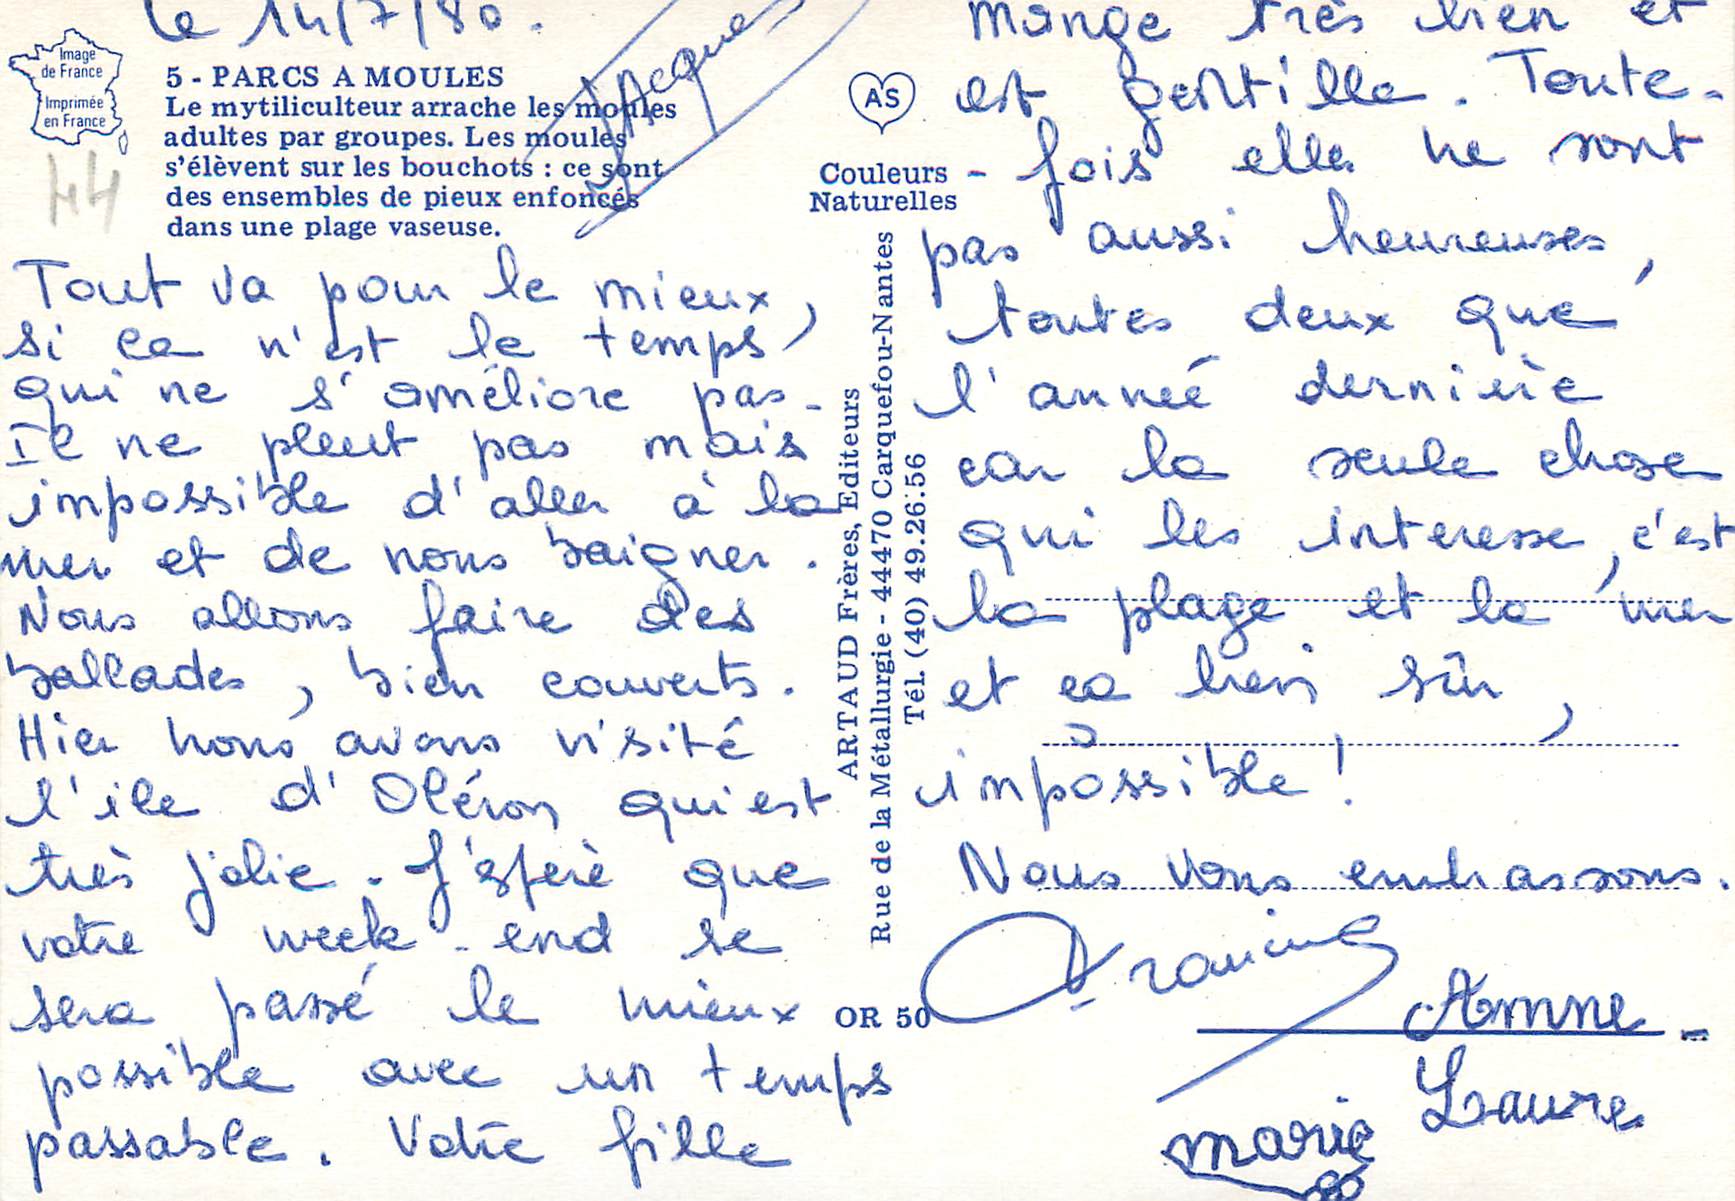 le 14/7/80.
Image
de France
Imprimée
en France
44
5 - PARCS A MOULES
Le mytiliculteur arrache les moules
adultes par groupes. Les moules
s'élèvent sur les bouchots : ce sont
des ensembles de pieux enfoncés
dans une plage vaseuse.
Jacques
Tout va pour le mieux,
si ce n'est le temps
qui ne s'améliore pas.
Il ne pleut pas mais
impossible d'aller à la
mer et de nous baigner.
Nous allons faire des
ballades, bien couverts.
Hier nous avons visité
l'ile d'Oléron qui est
très jolie. J'espère que
votre week-end se
sera passé le mieux
possible avec un temps
passable. Votre fille
AS
Couleurs
Naturelles
ARTAUD Frères, Editeurs
Rue de la Métallurgie - 44470 Carquefou-Nantes
Tél. (40) 49.26.56
OR 50
mange très bien et
est gentille. Toute-
- fois elles ne sont
pas aussi heureuses,
toutes deux que
l'année dernière
car la seule chose
qui les interesse, c'est
la plage et la mer
et ça bien sûr,
impossible !
Nous vous embrassons.
Francine
Anne-
Laure
marie